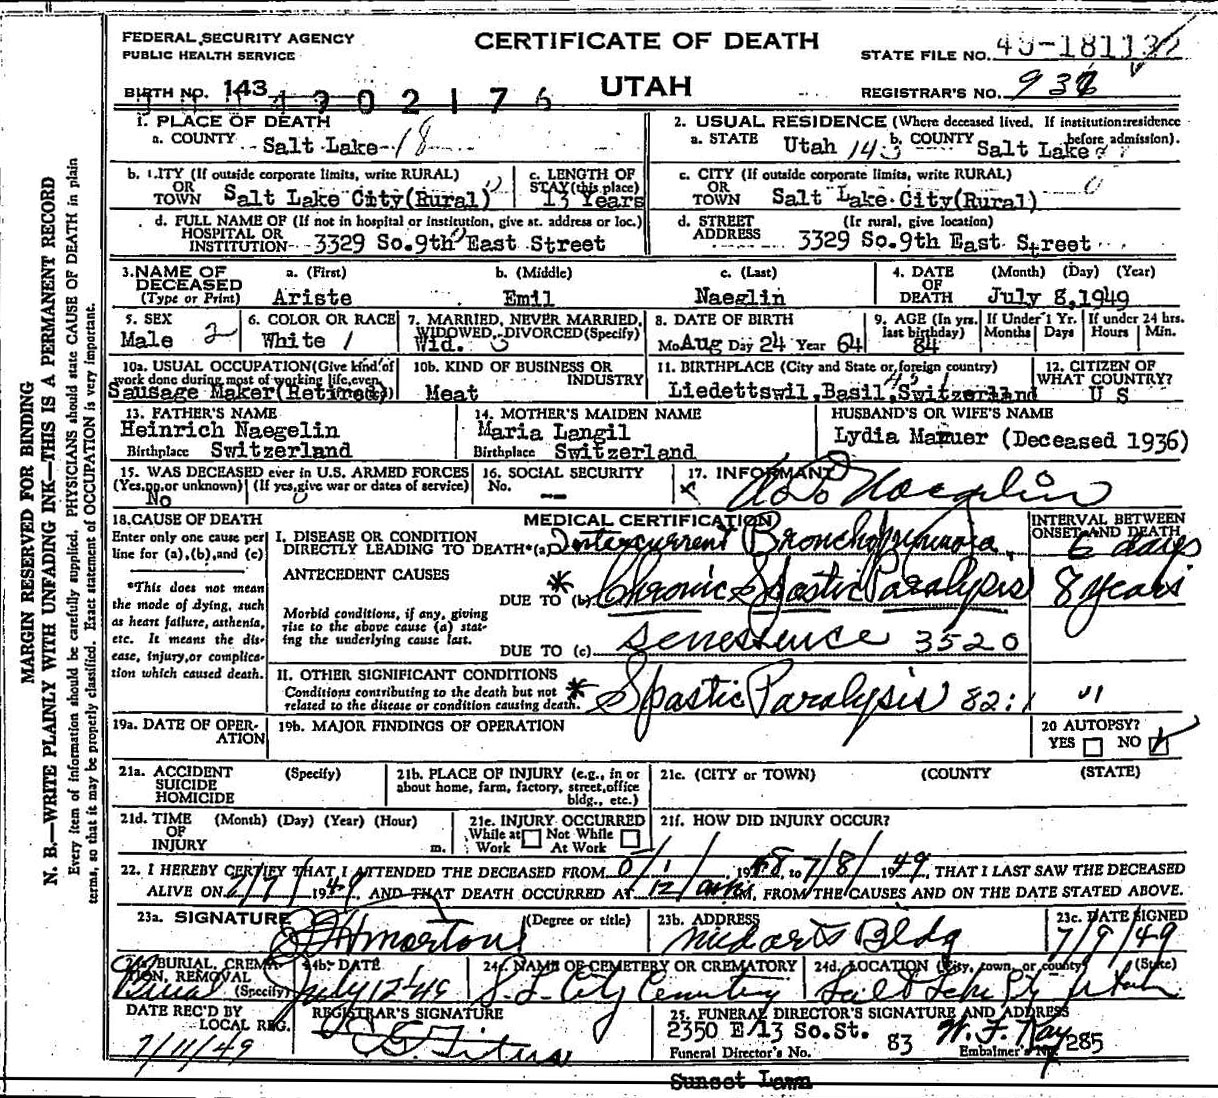 FEDERAL SECURITY AGENCY
PUBLIC HEALTH SERVICE
CERTIFICATE OF DEATH
UTAH
STATE FILE NO. 49-181132
REGISTRAR'S NO. 932
BIRTH NO. 143 4902176
1. PLACE OF DEATH
a. COUNTY Salt Lake 18
2. USUAL RESIDENCE (Where deceased lived. If institution:residence before admission).
a. STATE Utah 143 b. COUNTY Salt Lake
b. CITY (If outside corporate limits, write RURAL) OR TOWN Salt Lake City(Rural) 0
c. LENGTH OF STAY (this place) 13 Years
c. CITY (If outside corporate limits, write RURAL) OR TOWN Salt Lake City(Rural) 0
d. FULL NAME OF (If not in hospital or institution, give st. address or loc.) HOSPITAL OR INSTITUTION 3329 So.9th East Street
d. STREET ADDRESS (If rural, give location) 3329 So.9th East Street
3. NAME OF DECEASED (Type or Print)
a. (First) Ariste
b. (Middle) Emil
c. (Last) Naeglin
4. DATE OF DEATH (Month) (Day) (Year) July 8,1949
5. SEX Male 2
6. COLOR OR RACE White 1
7. MARRIED, NEVER MARRIED, WIDOWED, DIVORCED(Specify) Wid.
8. DATE OF BIRTH Mo Aug Day 24 Year 64
9. AGE (In yrs. last birthday) 84
If Under 1 Yr. Months Days
If under 24 hrs. Hours Min.
10a. USUAL OCCUPATION(Give kind of work done during most of working life,even Sausage Maker(Retired)
10b. KIND OF BUSINESS OR INDUSTRY Meat
11. BIRTHPLACE (City and State or foreign country) Liedettswil,Basil,Switzerland
12. CITIZEN OF WHAT COUNTRY? U S
13. FATHER'S NAME
Heinrich Naegelin
Birthplace Switzerland
14. MOTHER'S MAIDEN NAME
Maria Langil
Birthplace Switzerland
HUSBAND'S OR WIFE'S NAME
Lydia Mauer (Deceased 1936)
15. WAS DECEASED ever in U.S. ARMED FORCES
(Yes,no,or unknown) (If yes,give war or dates of service)
No 0
16. SOCIAL SECURITY
No. --
17. INFORMANT
x Naegelin
18. CAUSE OF DEATH
Enter only one cause per line for (a),(b),and (c)
*This does not mean the mode of dying, such as heart failure, asthenia, etc. It means the disease, injury,or complication which caused death.
MEDICAL CERTIFICATION
INTERVAL BETWEEN ONSET AND DEATH
I. DISEASE OR CONDITION
DIRECTLY LEADING TO DEATH*(a) Intercurrent Bronchopneumonia 6 days
ANTECEDENT CAUSES
DUE TO (b) * Chronic Spastic Paralysis 8 years
Morbid conditions, if any, giving rise to the above cause (a) stating the underlying cause last.
DUE TO (c) Senescence 3520
II. OTHER SIGNIFICANT CONDITIONS
Conditions contributing to the death but not related to the disease or condition causing death.
* Spastic Paralysis 82:1 "1
19a. DATE OF OPERATION
19b. MAJOR FINDINGS OF OPERATION
20 AUTOPSY?
YES NO
21a. ACCIDENT SUICIDE HOMICIDE (Specify)
21b. PLACE OF INJURY (e.g., in or about home, farm, factory, street,office bldg., etc.)
21c. (CITY or TOWN) (COUNTY) (STATE)
21d. TIME OF INJURY (Month) (Day) (Year) (Hour) m.
21e. INJURY OCCURRED
While at Work Not While At Work
21f. HOW DID INJURY OCCUR?
22. I HEREBY CERTIFY THAT I ATTENDED THE DECEASED FROM 1948, to 7/8/1949, THAT I LAST SAW THE DECEASED
ALIVE ON 1949 AND THAT DEATH OCCURRED AT 12 M, FROM THE CAUSES AND ON THE DATE STATED ABOVE.
23a. SIGNATURE (Degree or title) Morton
23b. ADDRESS Med arts Bldg
23c. DATE SIGNED 7/9/49
24a. BURIAL, CREMATION, REMOVAL (Specify) Burial
24b. DATE July 12-49
24c. NAME OF CEMETERY OR CREMATORY S. L. City Cemetery
24d. LOCATION (City, town, or county) (State) Salt Lake City Utah
DATE REC'D BY LOCAL REG. 7/11/49
REGISTRAR'S SIGNATURE
25. FUNERAL DIRECTOR'S SIGNATURE AND ADDRESS
2350 E 13 So.St.
Funeral Director's No. 83
W. F. Ray
Embalmer's No. 285
Sunset Lawn
MARGIN RESERVED FOR BINDING
N. B.—WRITE PLAINLY WITH UNFADING INK—THIS IS A PERMANENT RECORD
Every item of information should be carefully supplied. PHYSICIANS should state CAUSE OF DEATH in plain
terms, so that it may be properly classified. Exact statement of OCCUPATION is very important.